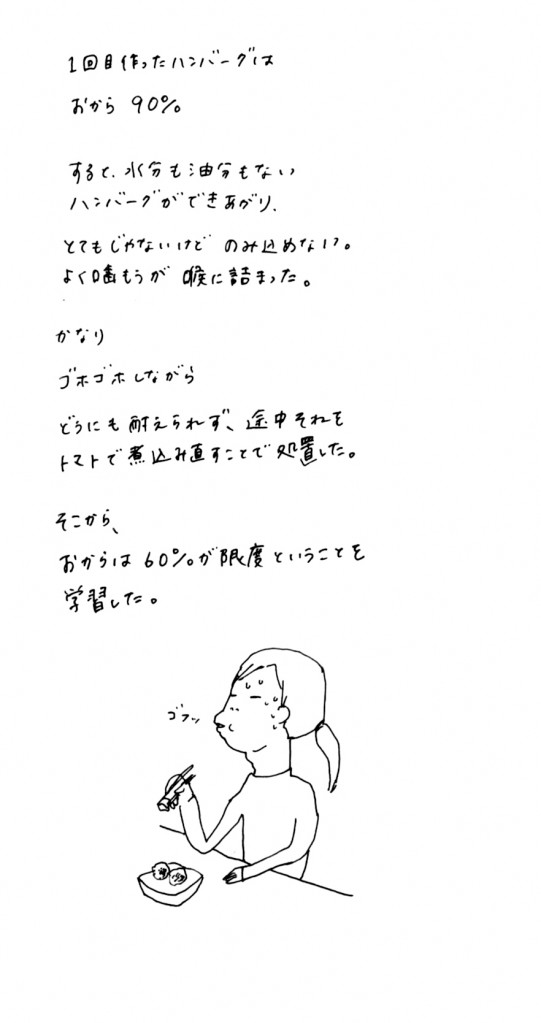 1回目作ったハンバーグは
おから 90%。
すると、水分も油分もない
ハンバーグができあがり、
とてもじゃないけど のみ込めない。
よく噛もうが 喉に詰まった。
かなり
ゴホゴホしながら
どうにも耐えられず、途中それを
トマトで煮込み直すことで処置した。
そこから、
おからは60%が限度ということを
学習した。
ゴフッ